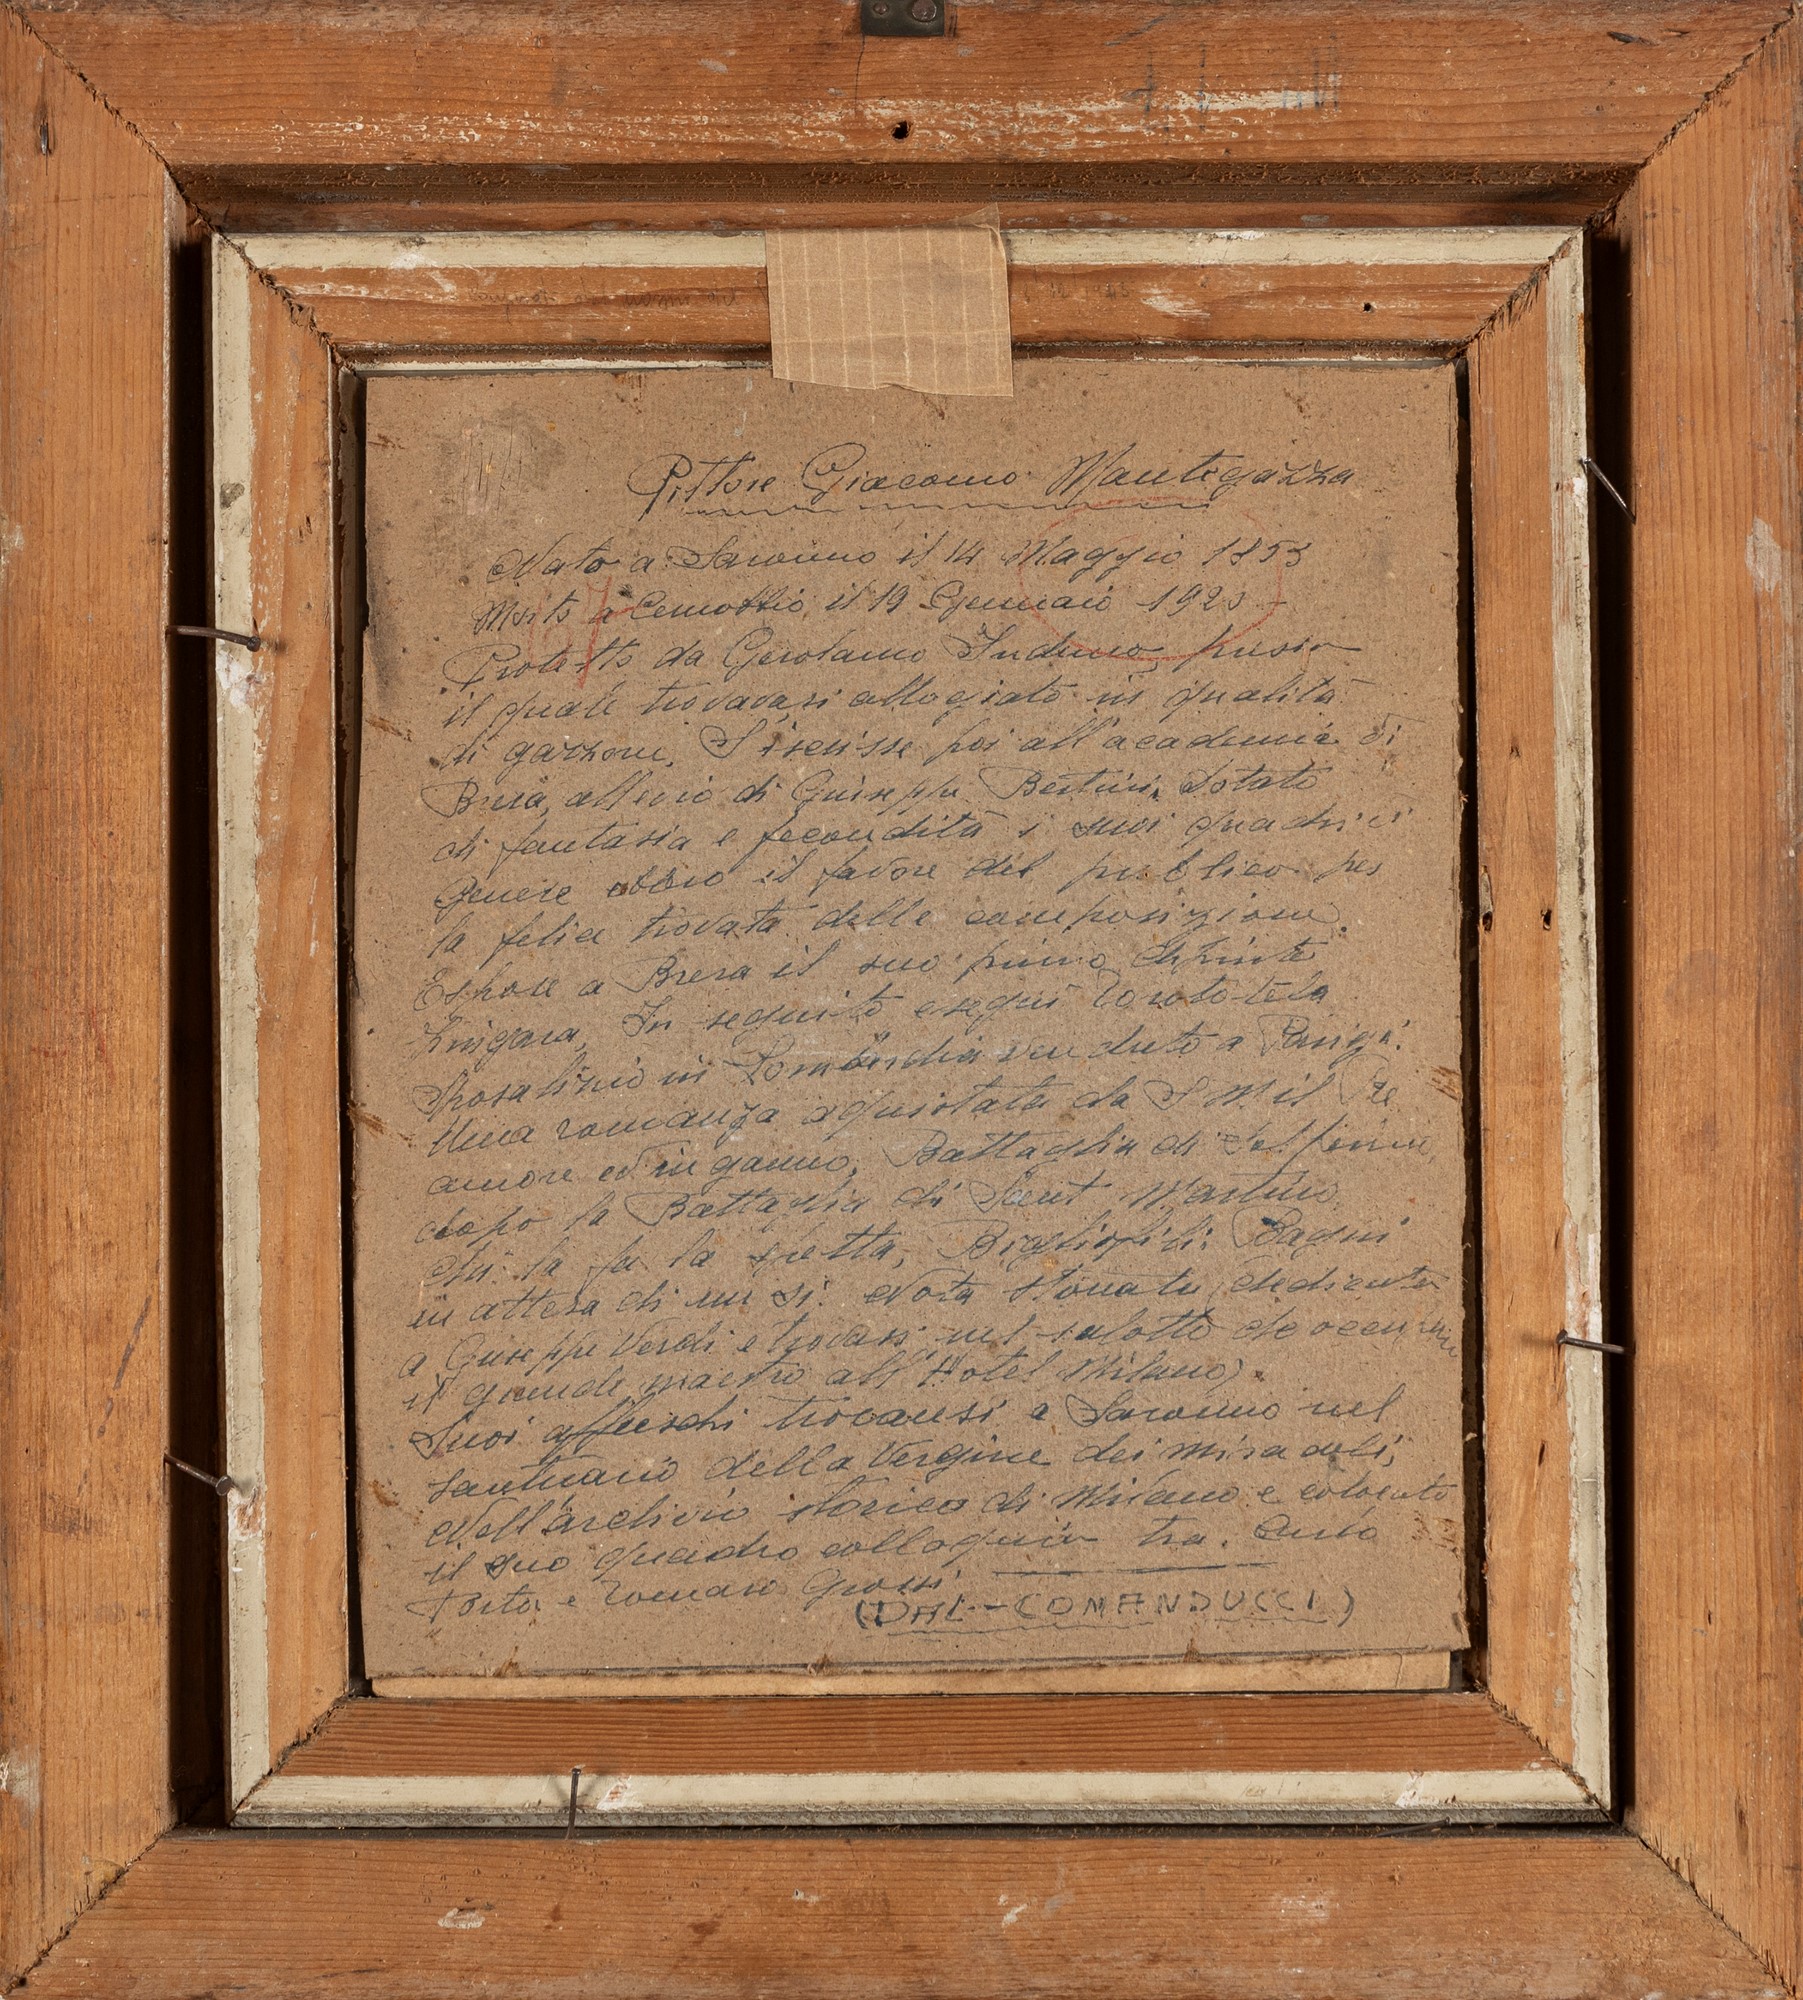 Pittore Giacomo Mantegazza
Nato a Saronno il 14 Maggio 1853
Morto a Cernobbio il 19 Gennaio 1920
Protetto da Gerolamo Induno, presso
il quale trovavasi allogiato in qualità
di garzone. S'iscrisse poi all'academia di
Brera, allievo di Giuseppe Bertini. Dotato
di fantasia e fecondità i suoi quadri di
Genere ebbero il favore del publico per
la felice trovata delle composizioni.
Espose a Brera il suo primo dipinto
Zingara, In seguito eseguì
in Lombardia venduto a Parigi.
Una romanza aquistata da S M il Re
amore ed inganno, Battaglia di Solferino,
dopo la Battaglia di Sant Martino
Chi la fa la spetta, Bagni
in attesa di un si. Nota stonata, dedicata
a Giuseppe Verdi e trovasi nel salotto
il grande maestro all'Hotel Milano).
Suoi affreschi trovansi a Saronno nel
santuario della Vergine dei miracoli,
Nell'archivio storico di Milano e colocato
il suo quadro colloquio tra. Carlo
Porta e Tomaso Grossi
(DAL - COMANDUCCI)